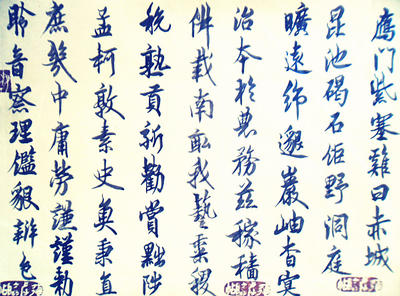 鴈門紫塞雞田赤城
昆池碣石鉅野洞庭
曠遠綿邈巖岫杳冥
治本於農務茲稼穡
俶載南畝我藝黍稷
稅熟貢新勸賞黜陟
孟軻敦素史魚秉直
庶幾中庸勞謙謹勅
聆音察理鑑貌辨色